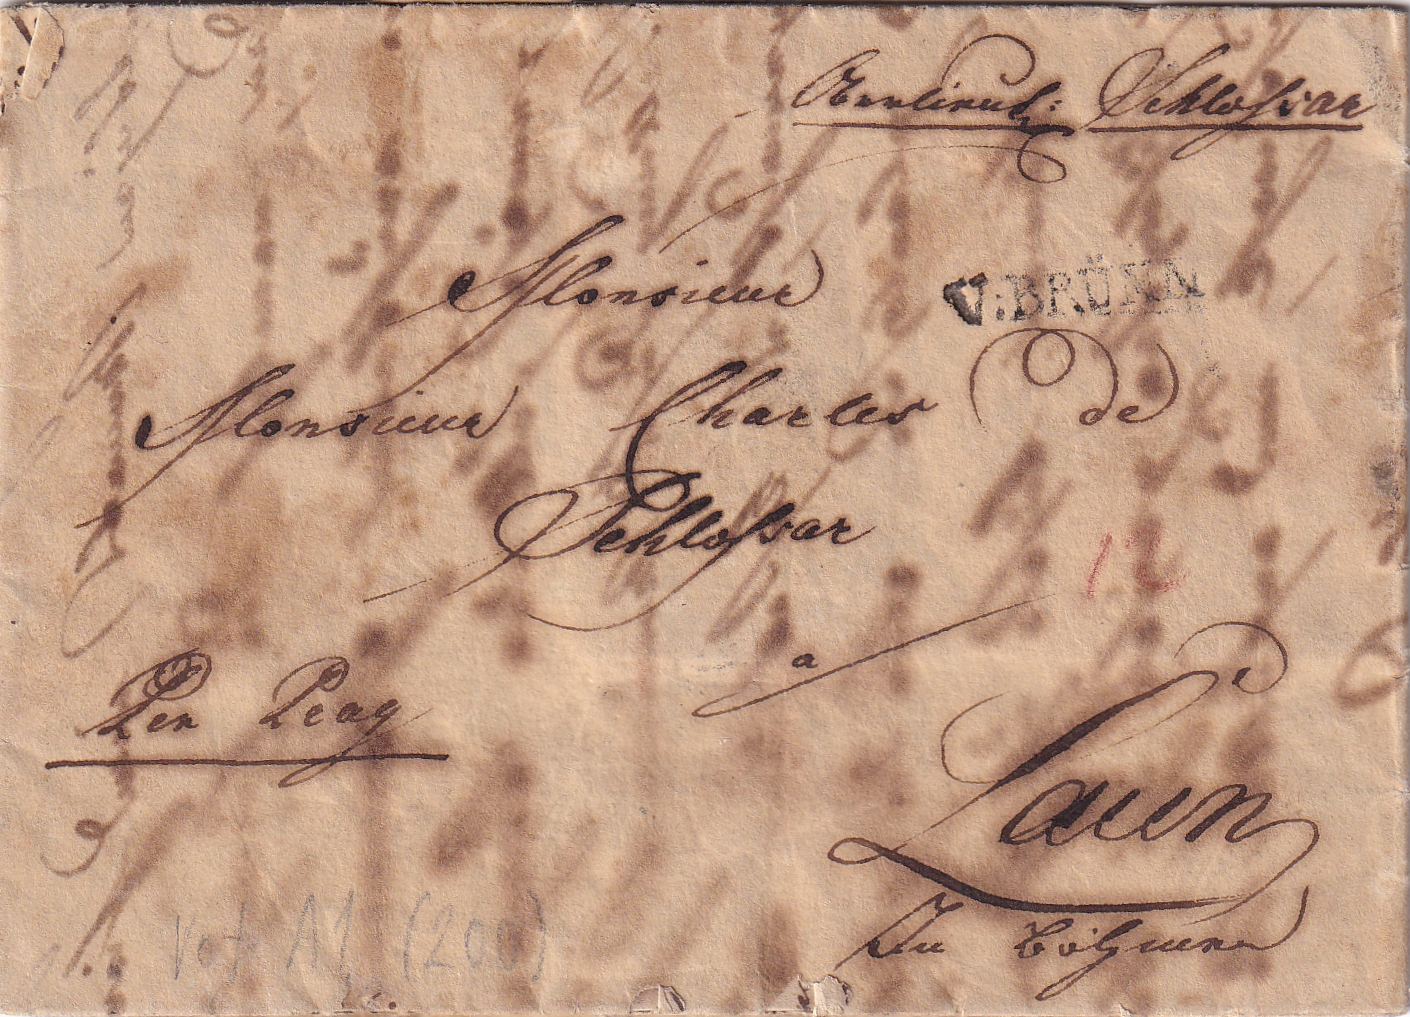 Oberlieut: Schlossar
Monsieur
V:BRÜNN
Monsieur Charles de
Schlossar
12
a
Per Prag
Laun
In Böhmen
(200)